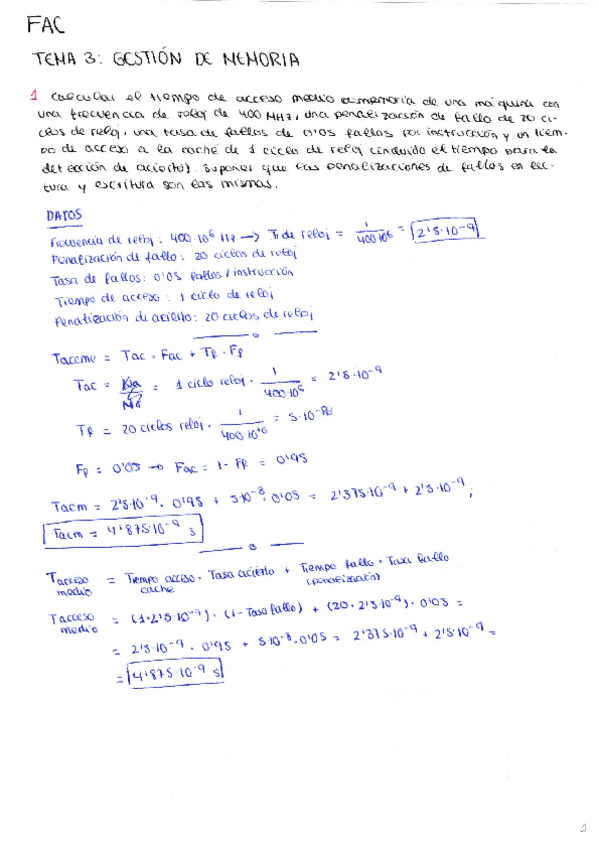 FAC
TEMA 3: GESTIÓN DE MEMORIA
1 Calcular el tiempo de acceso medio a memoria de una máquina con
una frecuencia de reloj de 400 MHz, una penalización de fallo de 20 ci-
clos de reloj, una tasa de fallos de 0'05 fallos por instrucción y un tiem-
po de acceso a la caché de 1 ciclo de reloj (incluido el tiempo para la
detección de acierto). Suponer que las penalizaciones de fallos en lec-
tura y escritura son las mismas.
DATOS
Frecuencia de reloj: 400·10⁶ Hz → T de reloj = 1/400·10⁶ = 2'5·10⁻⁹
Penalización de fallo: 20 ciclos de reloj
Tasa de fallos: 0'05 fallos/instrucción
Tiempo de acceso: 1 ciclo de reloj
Penalización de acierto: 20 ciclos de reloj
Taccme = Tac · Fac + Tf · Ff
Tac = 1 ciclo reloj · 1/400·10⁶ = 2'5·10⁻⁹
Tf = 20 ciclos reloj · 1/400·10⁶ = 5·10⁻⁸
Ff = 0'05 → Fac = 1 - Ff = 0'95
Tacm = 2'5·10⁻⁹ · 0'95 + 5·10⁻⁸ · 0'05 = 2'375·10⁻⁹ + 2'5·10⁻⁹;
Tacm = 4'875·10⁻⁹ s
Tacceso medio = Tiempo acceso caché · Tasa acierto + Tiempo fallo (penalización) · Tasa fallo
Tacceso medio = (1·2'5·10⁻⁹) · (1-Tasa fallo) + (20·2'5·10⁻⁹) · 0'05 =
= 2'5·10⁻⁹ · 0'95 + 5·10⁻⁸ · 0'05 = 2'375·10⁻⁹ + 2'5·10⁻⁹ =
= 4'875·10⁻⁹ s